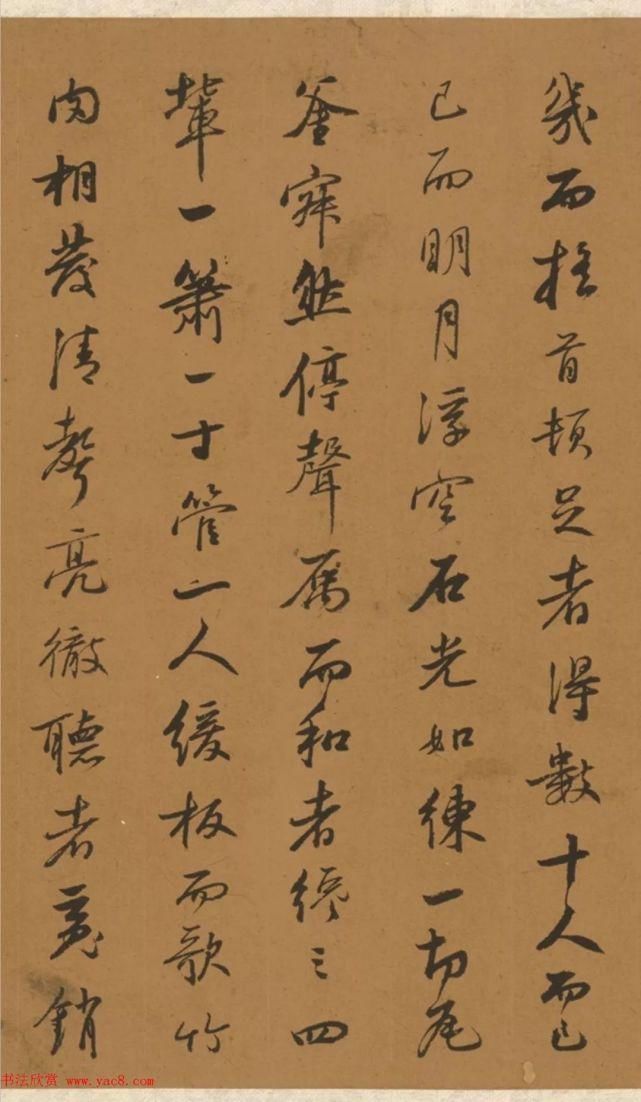 幾而搖首頓足者得數十人而已
已而明月浮空石光如練一切瓦
釜寂然停聲属而和者纔三四
輩一簫一寸管一人緩板而歌竹
肉相發清聲亮徹聽者魂銷
书法欣赏 www.yac8.com